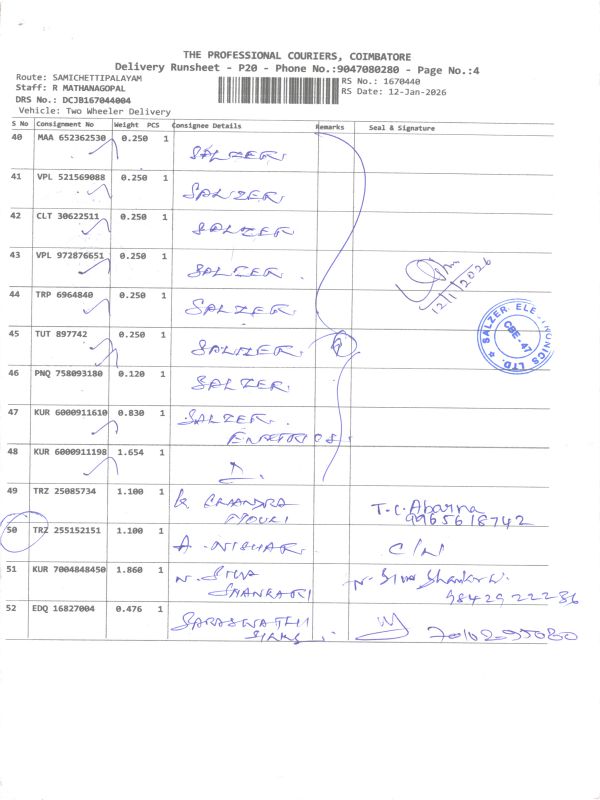 THE PROFESSIONAL COURIERS, COIMBATORE
Delivery Runsheet - P20 - Phone No.:9047080280 - Page No.:4
Route: SAMICHETTIPALAYAM
Staff: R MATHANAGOPAL
DRS No.: DCJB167044004
Vehicle: Two Wheeler Delivery
RS No.: 1670440
RS Date: 12-Jan-2026
S No Consignment No Weight PCS Consignee Details Remarks Seal & Signature
40 MAA 652362530 0.250 1 SALZER
41 VPL 521569088 0.250 1 SALZER
42 CLT 30622511 0.250 1 SALZER
43 VPL 972876651 0.250 1 SALZER
12/1/2026
44 TRP 6964840 0.250 1 SALZER
SALZER ELE NONICS LTD.
CBE-47
45 TUT 897742 0.250 1 SALZER 9
46 PNQ 758093180 0.120 1 SALZER
47 KUR 6000911610 0.830 1 SALZER
48 KUR 6000911198 1.654 1
49 TRZ 25085734 1.100 1 CHANDRA
T.C. Abarna
9965618742
50 TRZ 255152151 1.100 1 A
51 KUR 7004848450 1.860 1 N. SIVA
SHANKAR
N. Siva Shankar
9842922236
52 EDQ 16827004 0.476 1 SARASWATHI